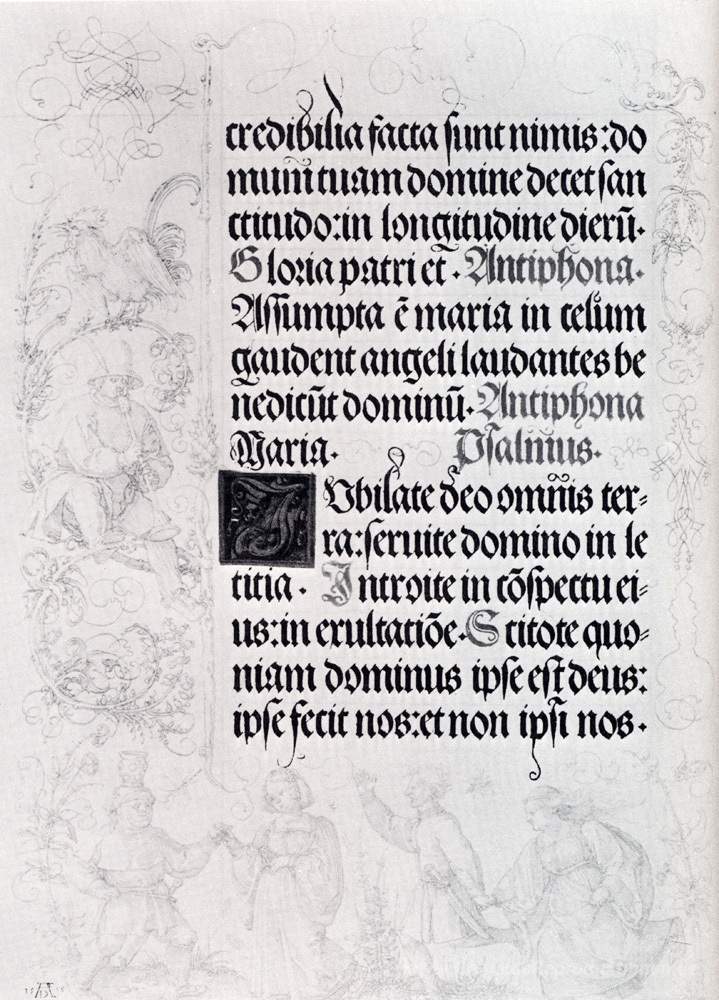 credibilia facta sunt nimis: do
mum̄ tuam domine decet san
ctitudo: in longitudine dierū.
Gloria patri et. Antiphona.
Assumpta ē maria in celum
gaudent angeli laudantes be
nedicūt dominū. Antiphona
Maria. Psalmus.
IVbilate deo omnis ter=
ra: seruite domino in le
titia. Introite in cōspectu ei=
us: in exultatiōe. Scitote quo=
niam dominus ipse est deus:
ipse fecit nos: et non ipsi nos.